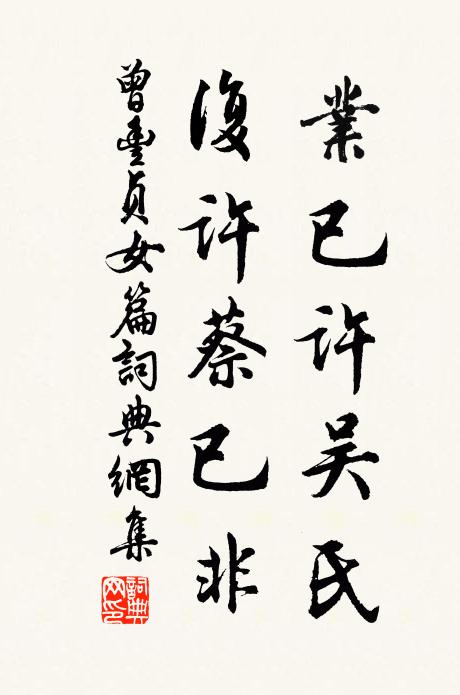 業已許吴氏
復許蔡已非
曾豐貞女篇詞典網集
詞典网印